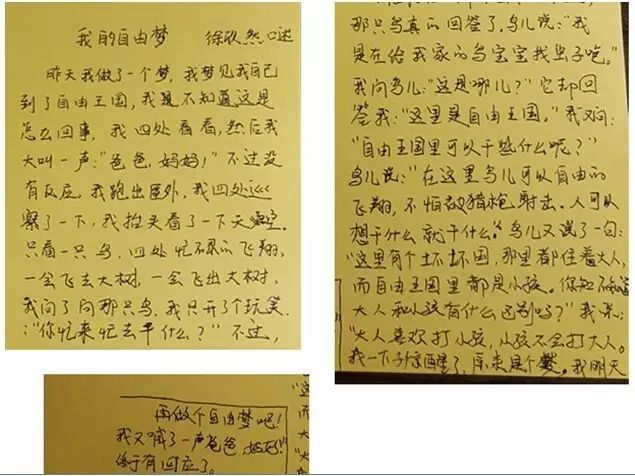 我的自由梦 徐孜然口述
昨天我做了一个梦，我梦见我自己
到了自由王国，我是不知道这是
怎么回事，我四处看看，然后我
大叫一声：“爸爸，妈妈！”不过没
有反应。我跑出屋外，我四处巡
察了一下，我抬头看了一下天空。
只看一只鸟，四处忙碌的飞翔，
一会飞去大树，一会飞出大树，
我问了问那只鸟，我只开了个玩笑
：“你忙来忙去干什么？”不过，
那只鸟真的回答了。鸟儿说：“我
是在给我家的鸟宝宝找虫子吃。”
我问鸟儿：“这是哪儿？”它却回
答我：“这里是自由王国。”我又问：
“自由王国里可以干些什么呢？”
鸟儿说：“在这里鸟儿可以自由的
飞翔，不怕被猎枪射击。人可以
想干什么就干什么。”鸟儿又说了一句：
“这里有个坏坏国，那里都住着大人，
而自由王国里都是小孩。你知不知道
大人和小孩有什么区别吗？”我说：
“大人喜欢打小孩，小孩不会打大人。
我一下子惊醒了，原来是个梦。我明天
再做个自由梦吧！
我又喊了一声爸爸，妈妈！”
终于有回应了。